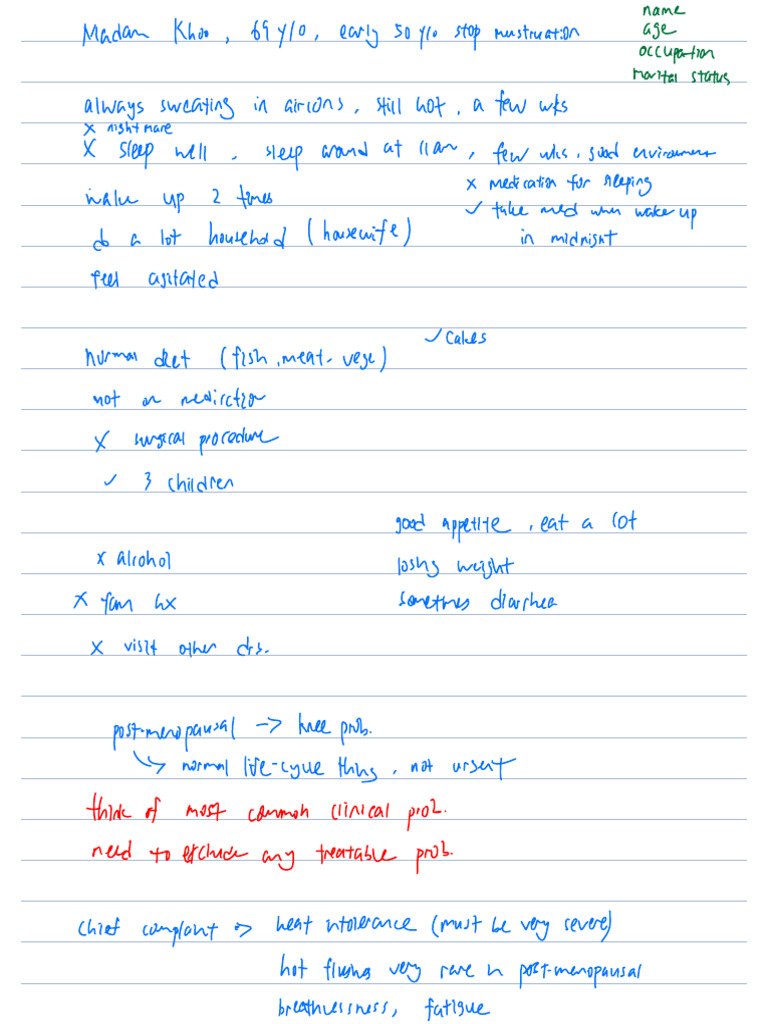 name
age
occupation
marital status
Madam Khoo, 69 y/o, early 50 y/o stop menstruation
always sweating in aircons, still hot, a few wks
x nightmare
x sleep well, sleep around at 11am, few wks, good environment
x medication for sleeping
wake up 2 times
✓ take med when wake up
in midnight
do a lot household (housewife)
feel agitated
✓ cakes
normal diet (fish, meat, vege)
not on medication
x surgical procedure
✓ 3 children
good appetite, eat a lot
x alcohol
losing weight
x fam hx
sometimes diarrhea
x visit other drs.
post-menopausal -> knee prob.
↳ normal life-cycle thing, not urgent
think of most common clinical prob.
need to exclude any treatable prob.
chief complaint => heat intolerance (must be very severe)
hot flushes very rare in post-menopausal
breathlessness, fatigue